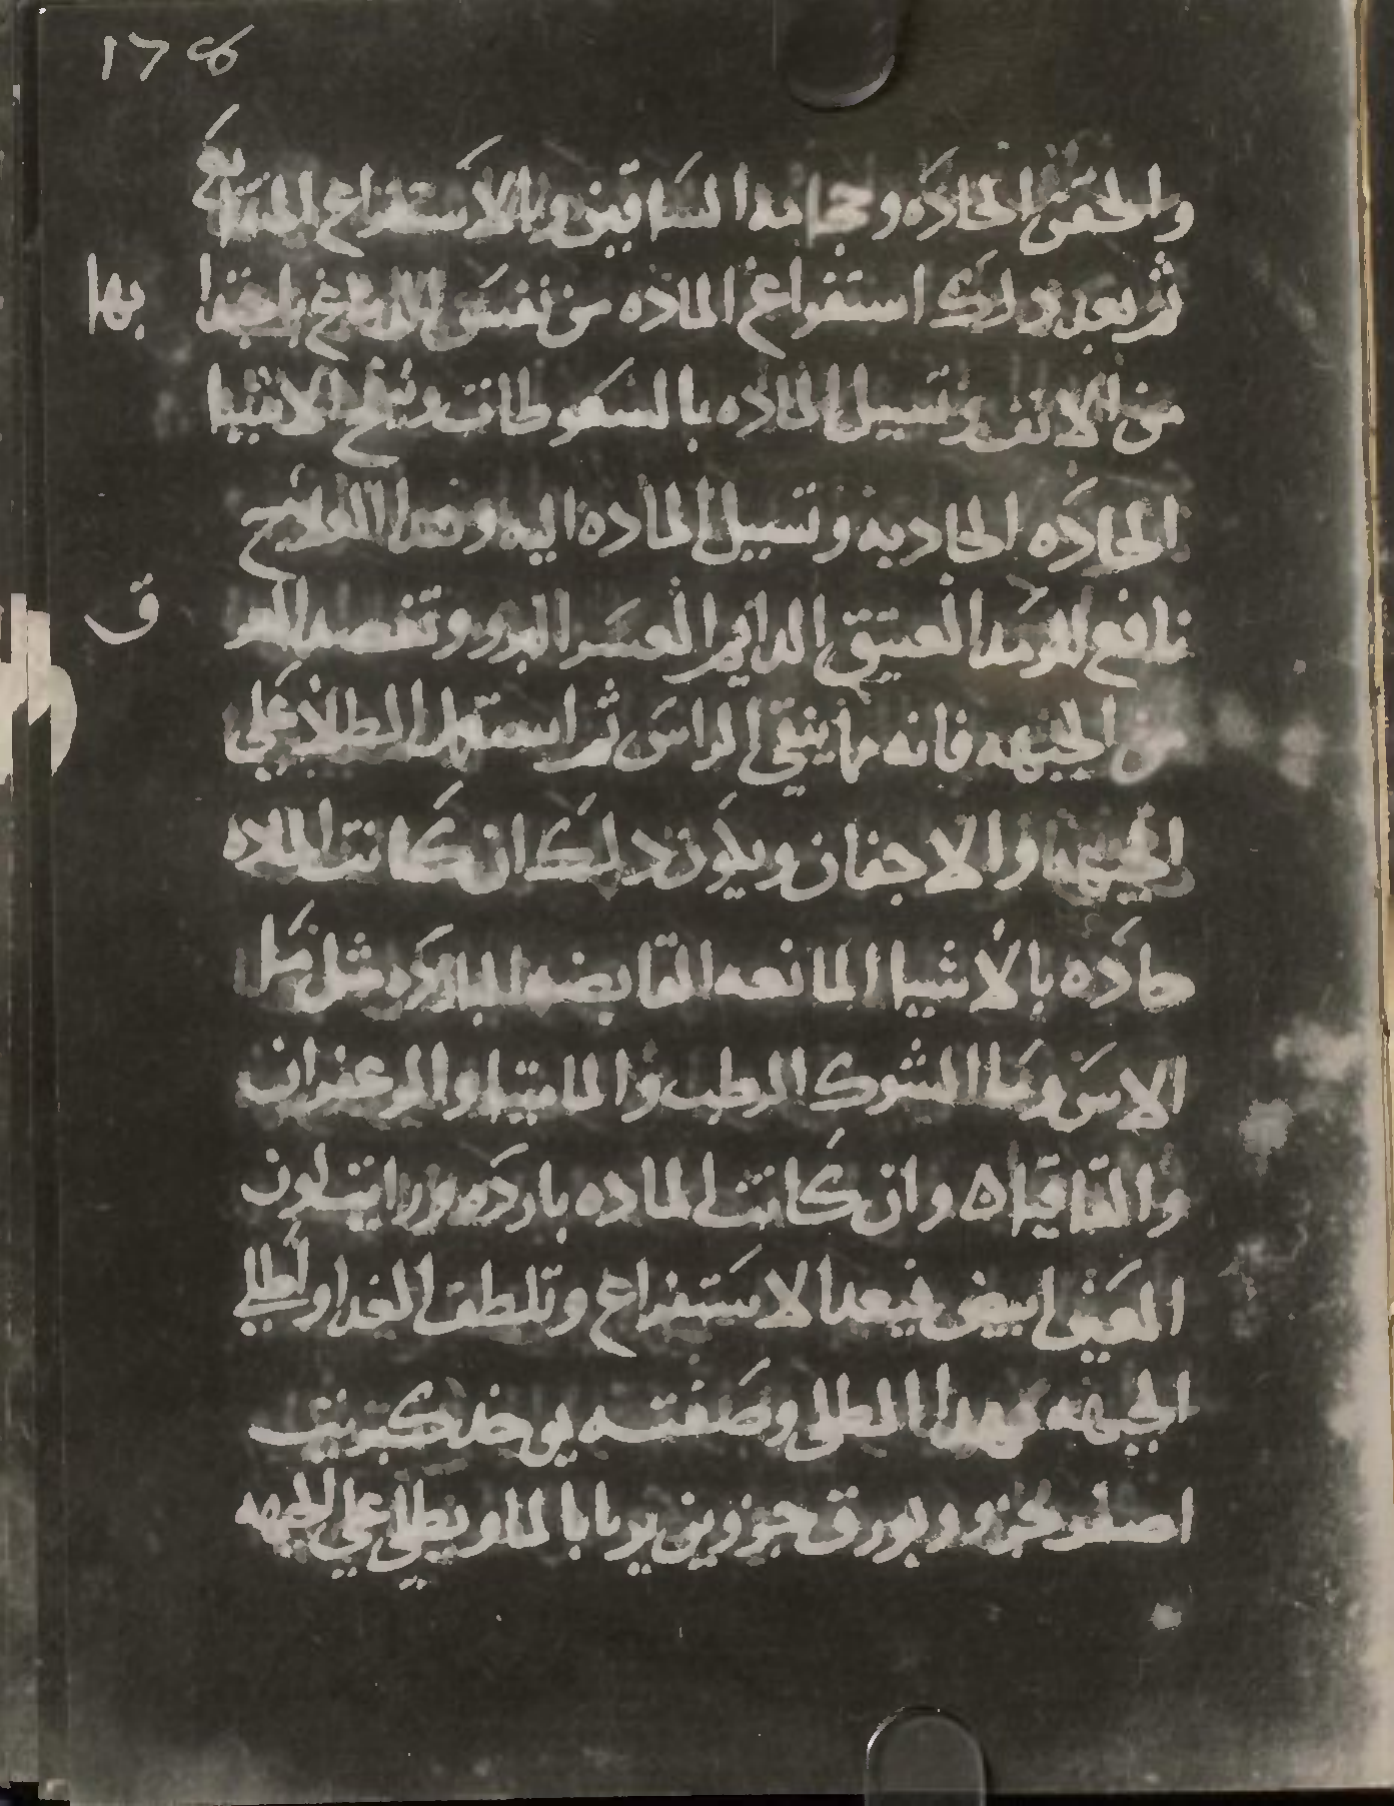 ١٢٥
والحقن الحاده وحجامه الساقين وبالاستفراغ المتتابع
ثم بعد ذلك استفراغ الماده من نفس الدماغ باجتدا
بها
من الانف وتسييل الماده بالسعوطات ونفخ الاشيا
الحاده الجاذبه وتسييل الماده اليه وهذا العلاج
نافع للرمد العتيق الدايم العسر البرو وتفصد العر
ق
من الجبهه فانه مما ينقي الراس ثم استعمل الطلا على
الجبهه والاجفان ويكون ذلك ان كانت الماده
حاده بالاشيا المانعه القابضه المبرده مثل ما
الاس وما الشوك الرطب والماميثا والزعفران
والقاقيا وان كانت الماده بارده ورايت لون
العين ابيض فبعد الاستفراغ وتلطف الغدا ولطلي
الجبهه بهذا الطلي وصفته يوخد كبريت
اصفر جزو وبورق جزوين يربا بالما ويطلي علي الجبهه